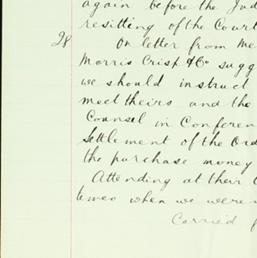 again before the Jud
resitting of the Court
28 On letter from Me
Morris Crisp & Co sugg
we should instruct
meet theirs and the
Counsel in Conferen
Settlement of the Ord
the purchase money
Attending at their
times when we were
Carried f